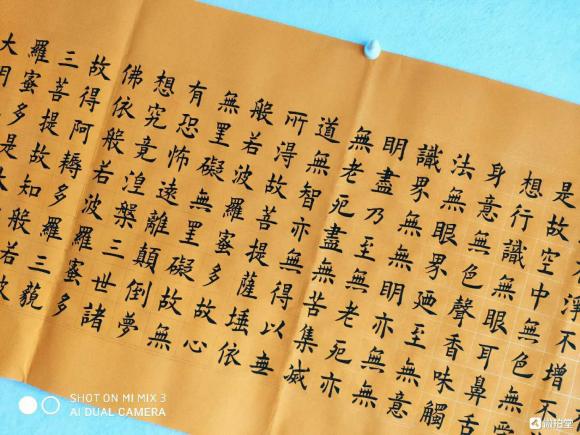 淨不增不
是故空中無色無受
想行識無眼耳鼻舌
身意無色聲香味觸
法無眼界廼至無意
識界無無明亦無無
明盡乃至無老死亦
無老死盡無苦集滅
道無智亦無得以无
所得故菩提薩埵依
般若波羅蜜多故心
無罣礙無罣礙故無
有恐怖遠離顛倒夢
想究竟涅槃三世諸
佛依般若波羅蜜多
故得阿耨多羅三藐
三菩提故知般若波
羅蜜多是大
大明
SHOT ON MI MIX 3
AI DUAL CAMERA
微拍堂